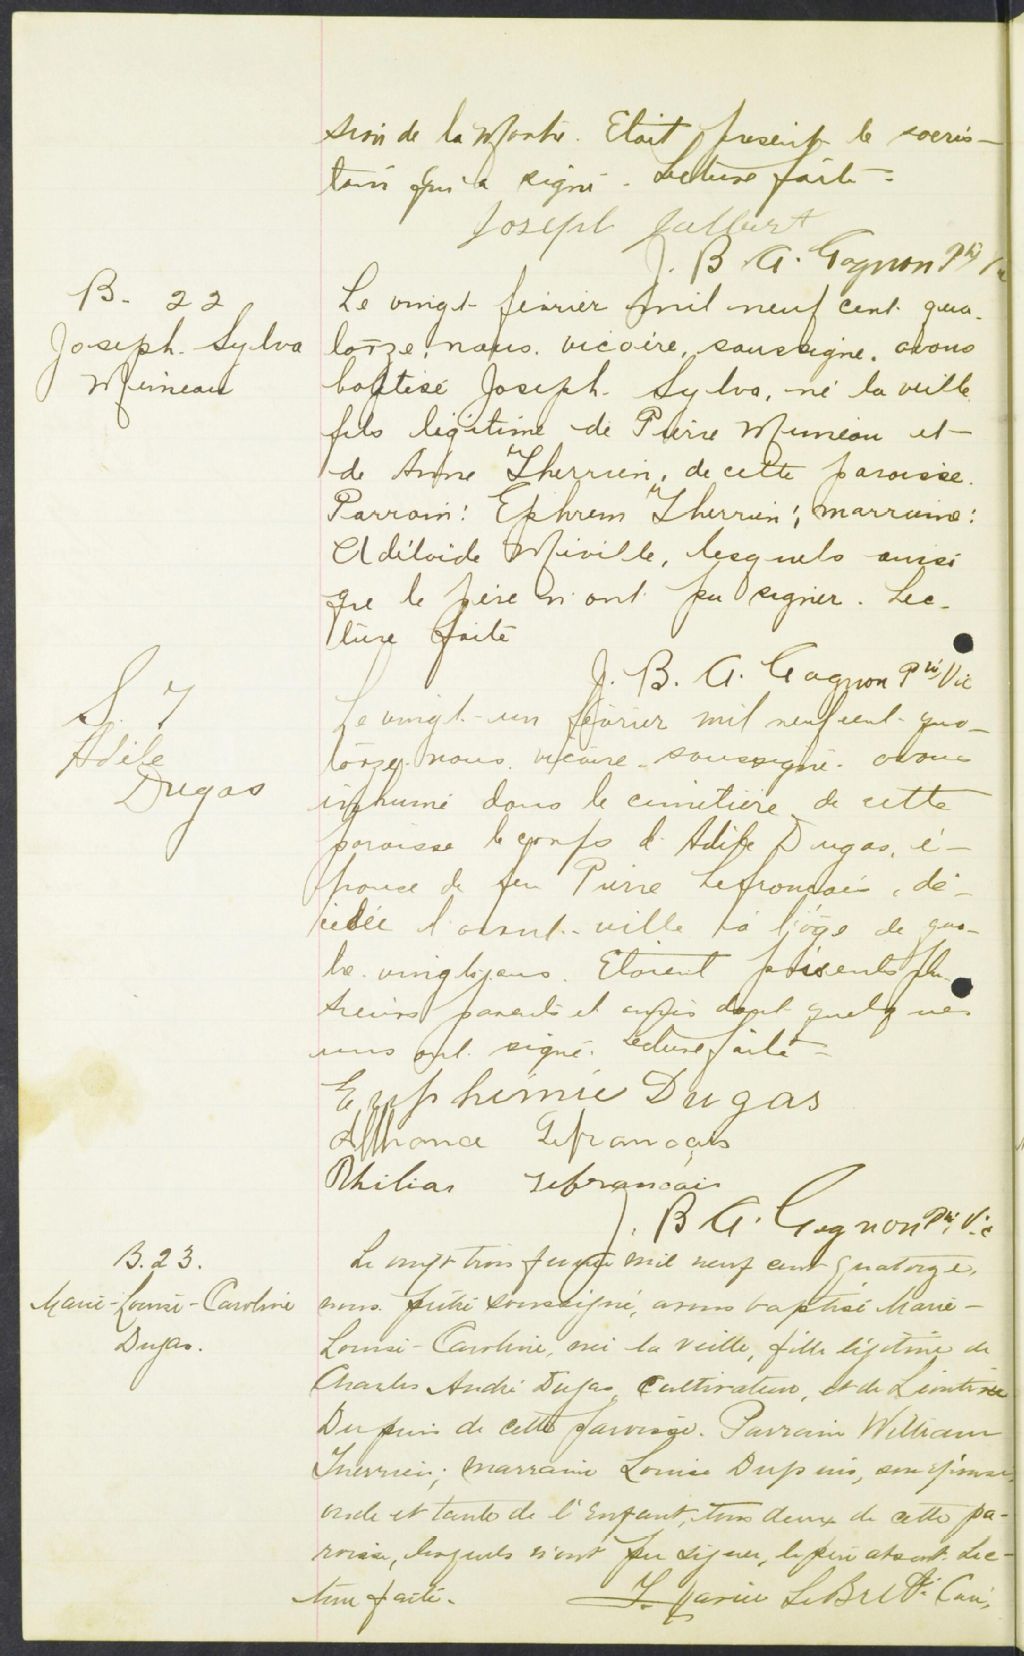 sion de la Montée. Etait présent le sacris-
tain qui a signé. Lecture faite.
Joseph Jalbert
J. B. A. Gagnon Ptre
B. 22
Joseph. Sylva
Muneau
Le vingt février mil neuf cent qua-
torze, nous, vicaire, soussigné, avons
baptisé Joseph. Sylva, né la veille
fils légitime de Pierre Muneau et
de Anne Therrien, de cette paroisse.
Parrain: Ephrem Therrien; marraine:
Adélaide Miville, lesquels ainsi
que le père n'ont pu signer. Lec-
ture faite
J. B. A. Gagnon Ptre, Vic
S. 7
Adile
Dugas
Le vingt-un février mil neuf cent qua-
torze, nous, vicaire soussigné avons
inhumé dans le cimetière de cette
paroisse le corps d'Adile Dugas, é-
pouse de feu Pierre Lefrançois, dé-
cédée l'avant-veille à l'âge de qua-
tre-vingts ans. Etaient présents plu-
sieurs parents et amis dont quelques
uns ont signé. Lecture faite
Euphémie Dugas
Lefrançois
Philias Lefrançois
J. B. A. Gagnon Ptre, Vic
B. 23.
Marie-Louise-Caroline
Dugas.
Le vingt trois février mil neuf cent quatorze,
nous prêtre soussigné, avons baptisé Marie-
Louise-Caroline, née la veille, fille légitime de
Charles André Dugas, cultivateur, et de Léontine
Dupuis de cette paroisse. Parrain William
Therrien; marraine Louise Dupuis, son épouse,
oncle et tante de l'enfant, tous deux de cette pa-
roisse, lesquels n'ont pu signer, le père absent. Lec-
ture faite.
LeBrel Ptre Curé